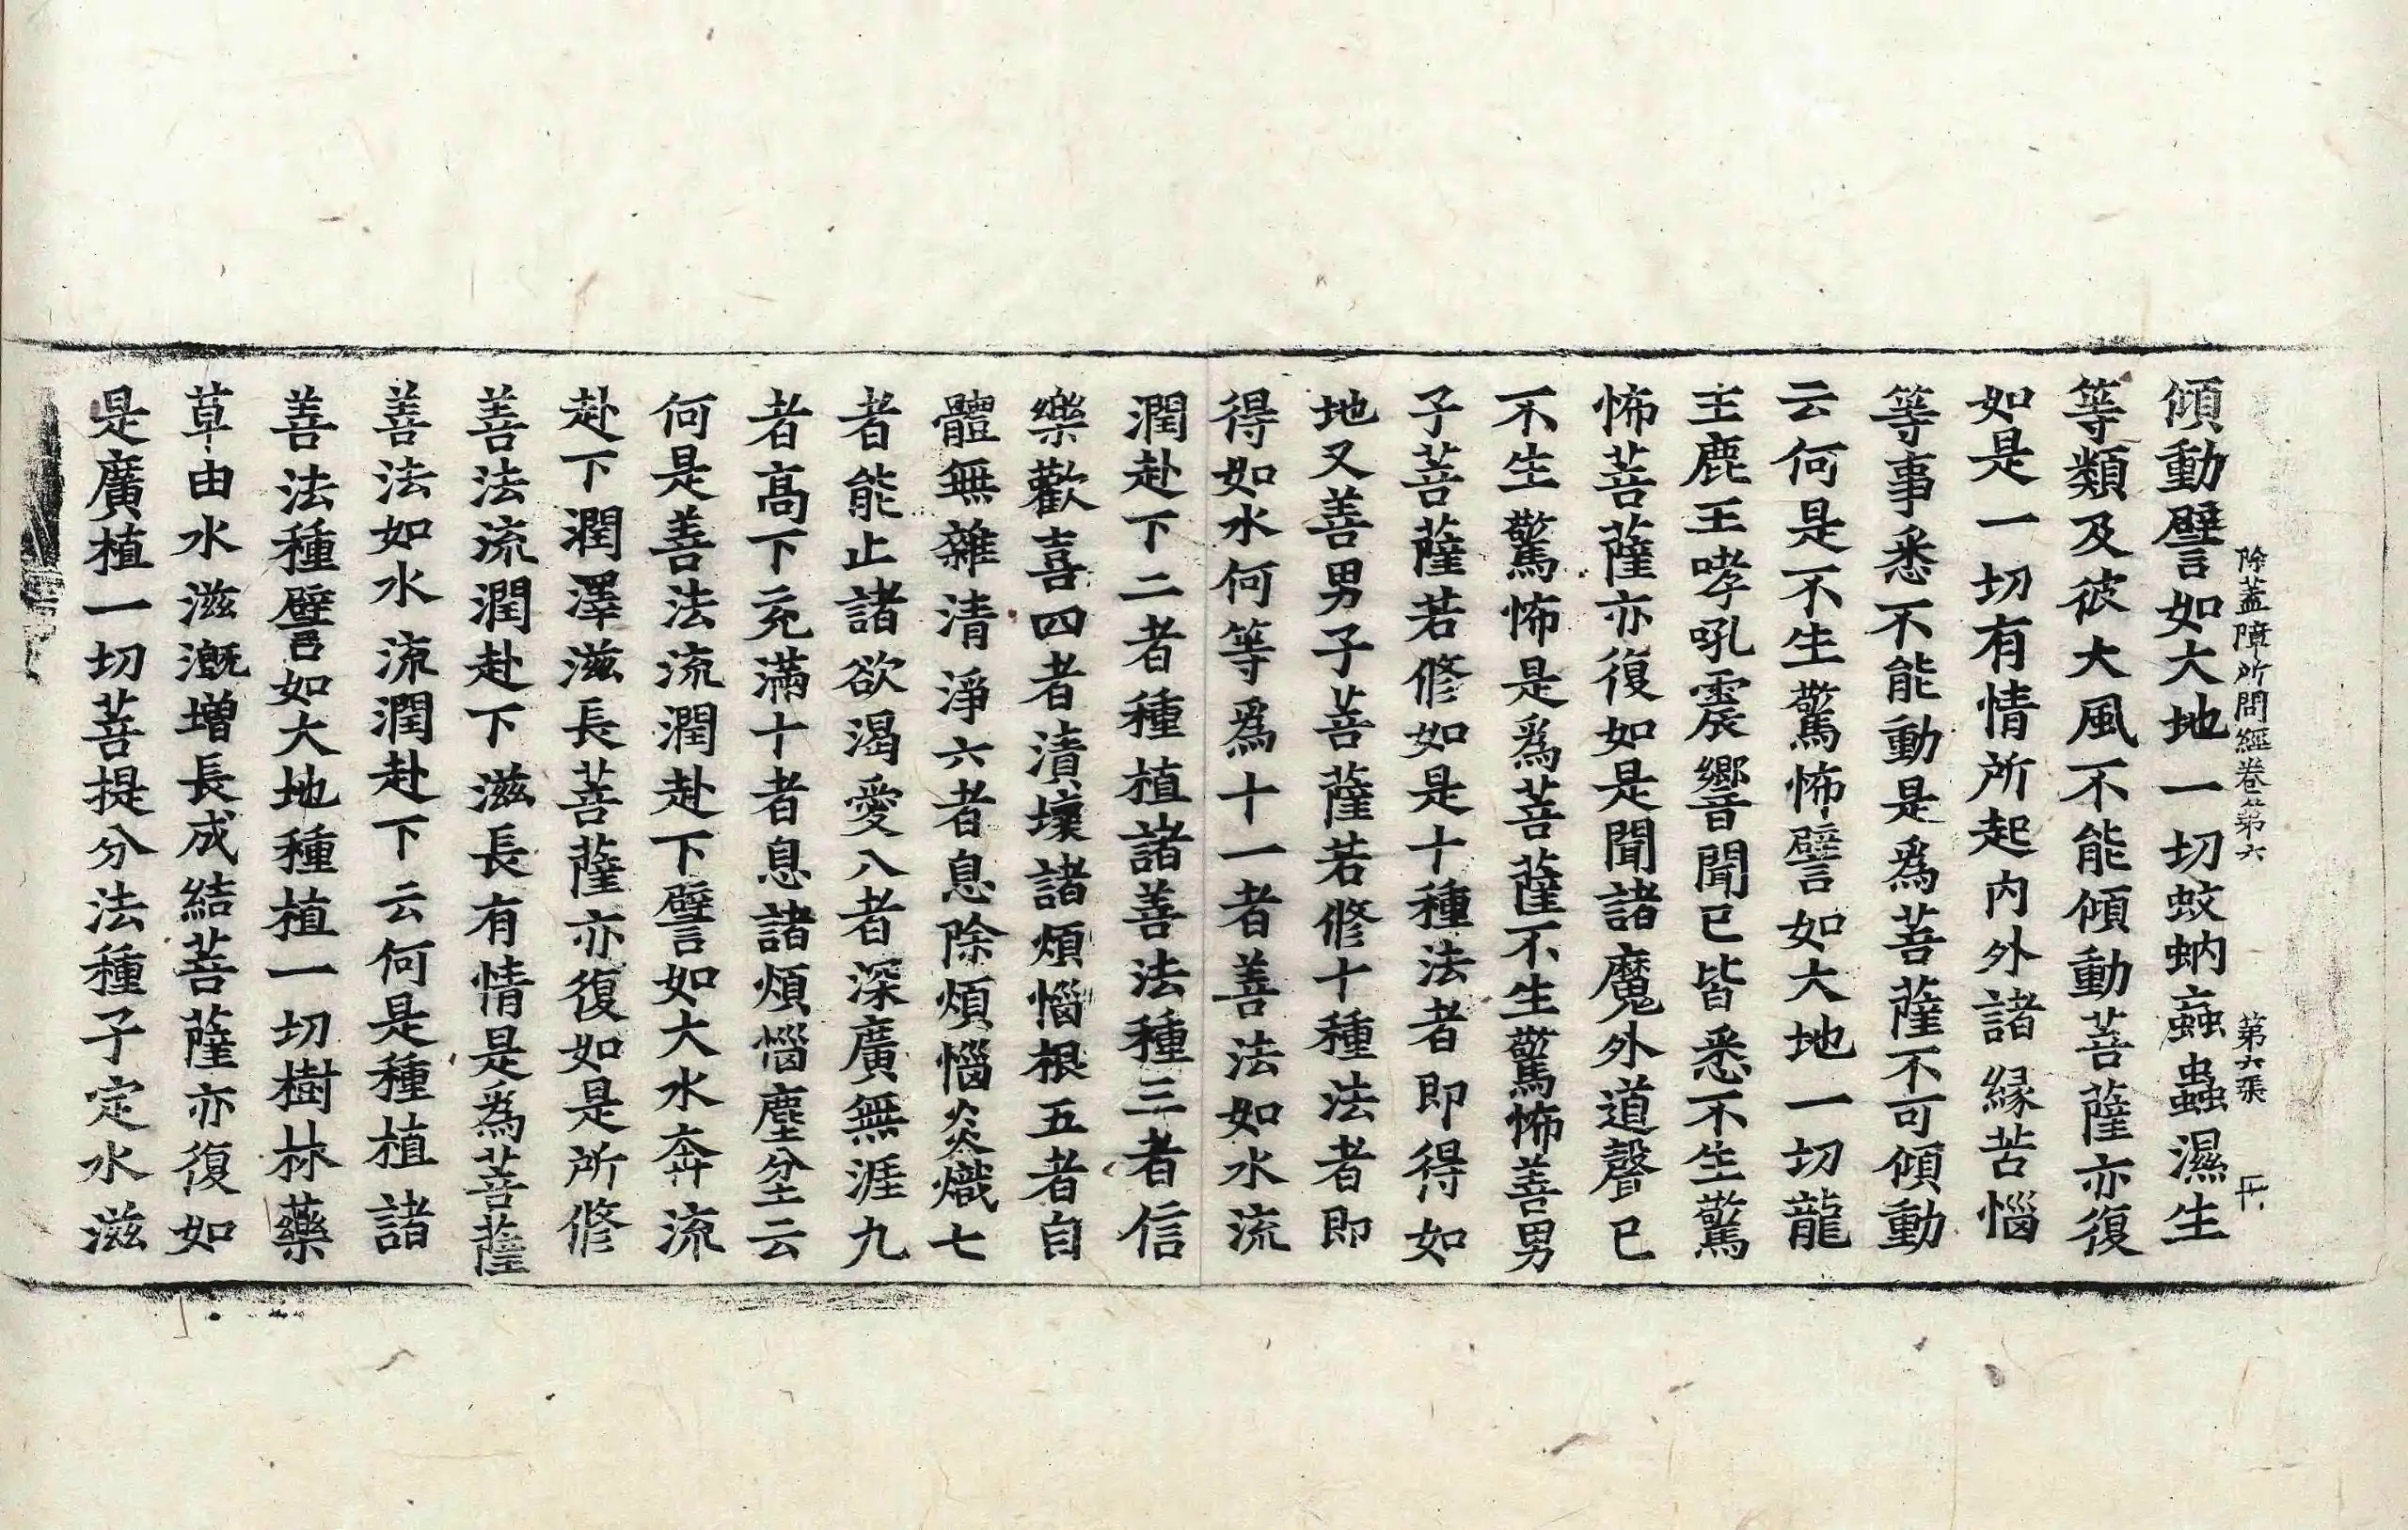 除蓋障所問經卷第六　第六張　
傾動譬如大地一切蚊蚋蝱蟲濕生
等類及彼大風不能傾動菩薩亦復
如是一切有情所起內外諸緣苦惱
等事悉不能動是爲菩薩不可傾動
云何是不生驚怖譬如大地一切龍
王鹿王哮吼震響聞已皆悉不生驚
怖菩薩亦復如是聞諸魔外道聲已
不生驚怖是爲菩薩不生驚怖善男
子菩薩若修如是十種法者即得如
地又善男子菩薩若修十種法者即
得如水何等爲十一者善法如水流
潤赴下二者種植諸善法種三者信
樂歡喜四者漬壞諸煩惱根五者自
體無雜清淨六者息除煩惱炎熾七
者能止諸欲渴愛八者深廣無涯九
者高下充滿十者息諸煩惱塵坌云
何是善法流潤赴下譬如大水奔流
赴下潤澤滋長菩薩亦復如是所修
善法流潤赴下滋長有情是爲菩薩
善法如水流潤赴下云何是種植諸
善法種譬如大地種植一切樹林藥
草由水滋溉增長成結菩薩亦復如
是廣植一切菩提分法種子定水滋